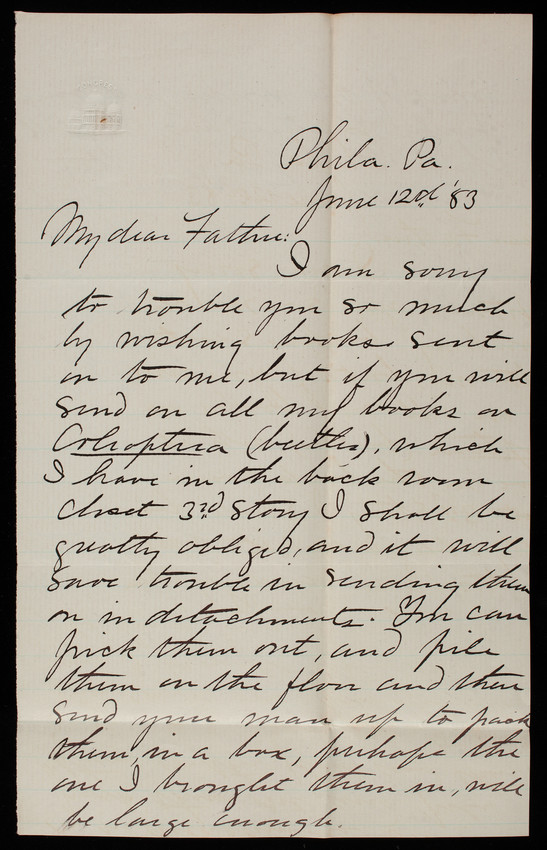 Phila. Pa.
June 12d '83
My dear Father:
I am sorry
to trouble you so much
by wishing books sent
on to me, but if you will
send on all my books on
Coleoptera (beetles), which
I have in the back room
closet 3rd Story I shall be
greatly obliged, and it will
save trouble in sending them
on in detachments. You can
pick them out, and pile
them on the floor and then
send your man up to pack
them, in a box, perhaps the
one I brought them in, will
be large enough.